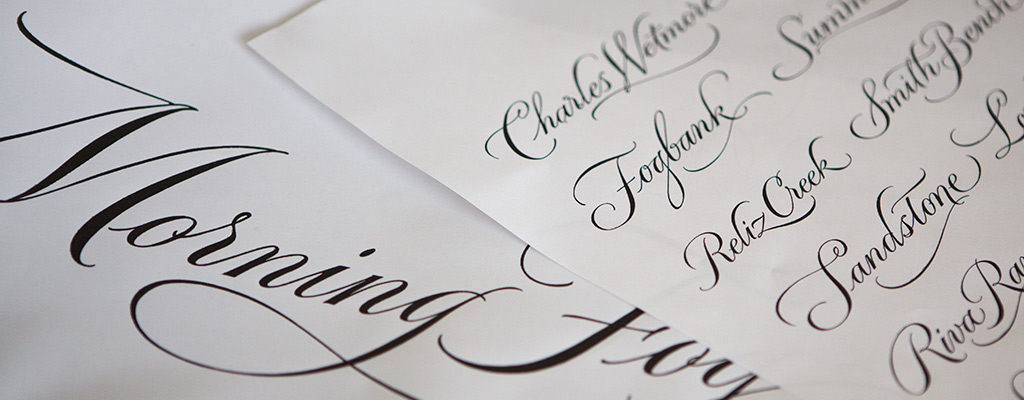 Morning Fog
Charles Wetmore
Summ
Fogbank
Smith Bench
Reliz Creek
Sandstone
Riva Ran